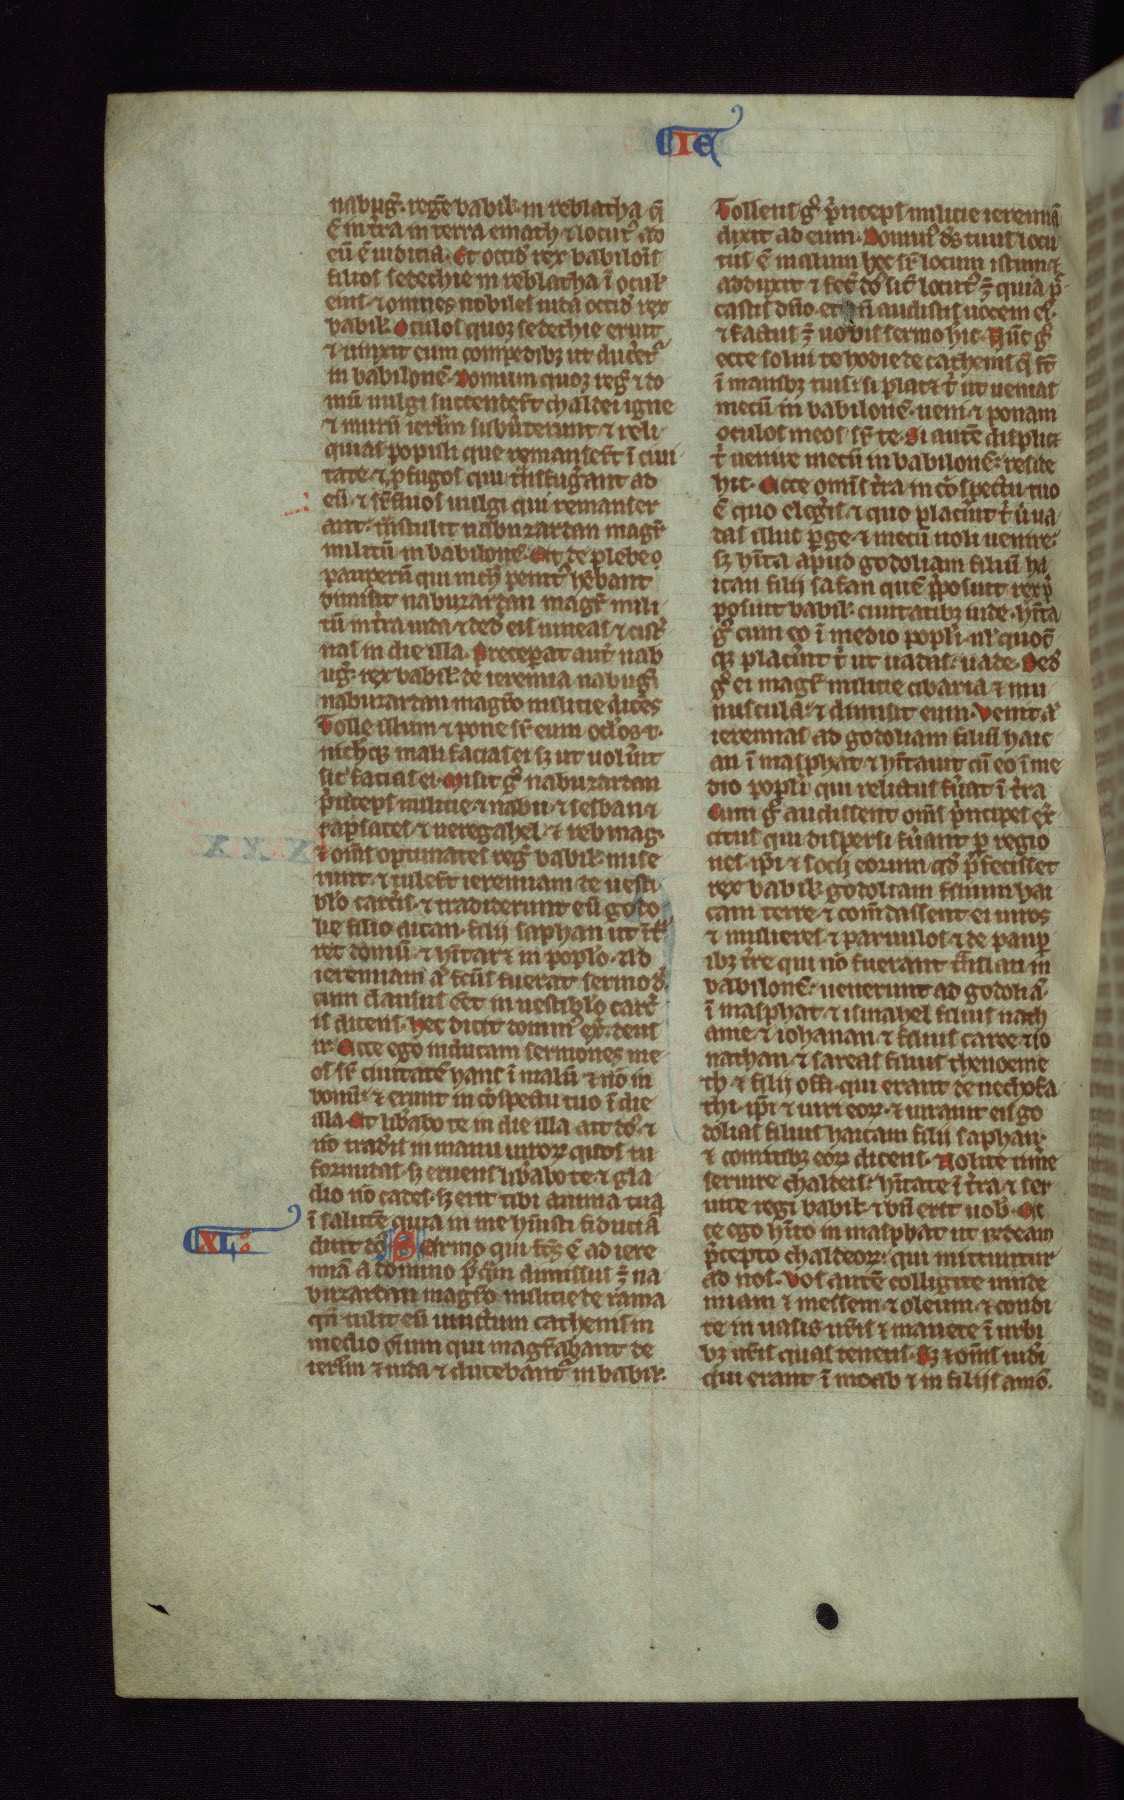 IE
nabugͦ. regē babil᷒. in reblatha. q̄
ē in t̄ra in terra emath. ⁊ locut᷒ ad
eū ē iudicia. Et occid᷒ rex babilōīs
filios sedechie in reblatha ī ocul᷒
eius. ⁊ omnes nobiles iuda occid᷒ rex
babil᷒. Oculos quoꝫ sedechie eruit
⁊ uinxit eum compedibꝫ ut ducet᷒
in babilonē. Domum quoꝫ reḡ ⁊ do
mū uulgi succendert chaldei igne
⁊ murū ierl̄m subūterunt. ⁊ reli
quias populi que remansert ī ciui
tate. ⁊ ꝑfugos qui t̄nsfugānt ad
eū. ⁊ suꝑfluos uulgi qui remanser
ant. t̄nstulit nabuzardan magr̄
militū in babilonē. Et de plebe
pauperū qui nich̄ penit᷒ hēbant
dimisit nabuzardan magr̄ mili
tū in t̄ra iuda. ⁊ ded᷒ eis uineas. ⁊ cist᷒
nas in die illa. Preceperat aut̄ nab
ugͦ. rex babil᷒. de ieremia nabugͦ
nabuzardan magr̄o milicie dicēs
Tolle illum ⁊ pone sr̄ eum oclōs t.
nichͨqꝫ mali facias ei. sꝫ ut uolūit
sic facias ei. Misit gͦ nabuzardan
p̄nceps milicie. ⁊ nabu. ⁊ sesban. ⁊
rapsates. ⁊ neregahel. ⁊ reb mag.
⁊ om̄s optimates reḡ babil᷒. mise
runt. ⁊ tulert ieremiam de uesti
blō carc̄is. ⁊ tradiderunt eū godo
lie filio aican. filii saphan ut ī t᷒
ret domū. ⁊ hītaret in poplō. Ad
ieremiam aͥ fc̄us fuerat sermo dͥ.
cum clausus eēt in uestiblō carc̄
is dicens. Hec dicit domin᷒ exͨ. deus
isr̄. Ecce ego inducam sermones me
os sr̄ ciuitatē hanc ī malū ⁊ nō in
bonū. ⁊ erunt in c̄spectu tuo ī die
illa. Et lib̄abo te in die illa ait dͦs. ⁊
nō trad̄is in manu uiroꝝ quos tu
formidas. sꝫ eruens lib̄abo te. ⁊ gla
dio nō cades. sꝫ erit tibi anima tua
ī salutē quia in me hūisti fiduciā
XL
dicit dͦs. Sermo qui fc̄s ē ad iere
miā a domino pͦq̄m dimissus ē a na
buzardan magr̄o milicie de rama
qn̄ tulit eū uinctum cathenis in
medio oīum qui mag̊bant de
ierl̄m ⁊ iuda. ⁊ ducebant᷒ in babil᷒.
Tollens gͦ p̄nceps milicie ieremiā
dixit ad eum. Domin᷒ dͦs tuus locu
tus ē malum hoc sr̄ locum istum. ⁊
adduxit. ⁊ fec̄ dͦs sic̄ locut᷒ ē. quia pͨ
castis dn̄o. et n̄ audistis uocem ei᷒.
⁊ factus ē uobis sermo hic. Nūc gͦ
ecce solui te hodie de cathenis q̄ st̄
ī manibꝫ tuis. si placet t̄ ut uenias
mecū in babilonē. ueni. ⁊ ponam
oculos meos sr̄ te. Si autē displic᷒
t̄ uenire mecū in babilonē. reside
hic. Ecce om̄s t̄ra in c̄spectu tuo
ē quo eleḡis. ⁊ quo placūit t̄ ū ua
das illuc ꝑge. ⁊ mecū noli uenire.
sꝫ hīta apud godoliam filiū ha
ican filii safan quē p̄posuit rex p̄
posuit babil᷒. ciuitatibꝫ iude. hīta
gͦ cum eo ī medio popl̄i. ul᷒ quoc̄
qꝫ placūit t̄ ut uadas. uade. Ded᷒
gͦ ei magr̄ milicie cibaria ⁊ mu
nuscula. ⁊ dimisit eum. Venit aͥ
ieremias ad godoliam filiū haic
an ī masphat. ⁊ hītauit cū eo ī me
dio popl̄i qui relictus fūat ī t̄ra
Cum gͦ audissent om̄s p̄ncipes ex̄
citus qui dispersi fūant ꝑ regio
nes. ip̄i ⁊ socii eorum. qd̄ p̄fecisset
rex babil᷒. godoliam filium hai
cam terre. ⁊ com̄dassent ei uiros
⁊ mulieres. ⁊ paruulos. ⁊ de pauꝑ
ibꝫ t̄re qui nō fuerant t̄nslati in
babilonē. uenerunt ad godoliā.
ī masphat. ⁊ ismahel filius nath
anie. ⁊ iohanan. ⁊ filius caree ⁊ io
nathan. ⁊ sareas filius thenoeme
th. ⁊ filii offi. qui erant de nechofa
thi. ip̄i ⁊ uiri eoꝝ. ⁊ iurauit eis go
dolias filius haicam filii saphan.
⁊ comitibꝫ eoꝝ dicens. Nolite tim̄e
seruire chaldeis. hītate ī t̄ra. ⁊ ser
uite regi babil᷒. ⁊ bn̄ erit uob᷒. Ec
ce ego hīto in masphat ut r̄ndeam
p̄cepto chaldeoꝝ. qui mittuntur
ad nos. Vos autē colligite uinde
miam ⁊ messem. ⁊ oleum. ⁊ condi
te in uasis ur̄is ⁊ manete ī urbi
bꝫ ur̄is quas tenetis. Sꝫ ⁊ om̄s iudī
qui erant ī moab ⁊ in filiis amō.